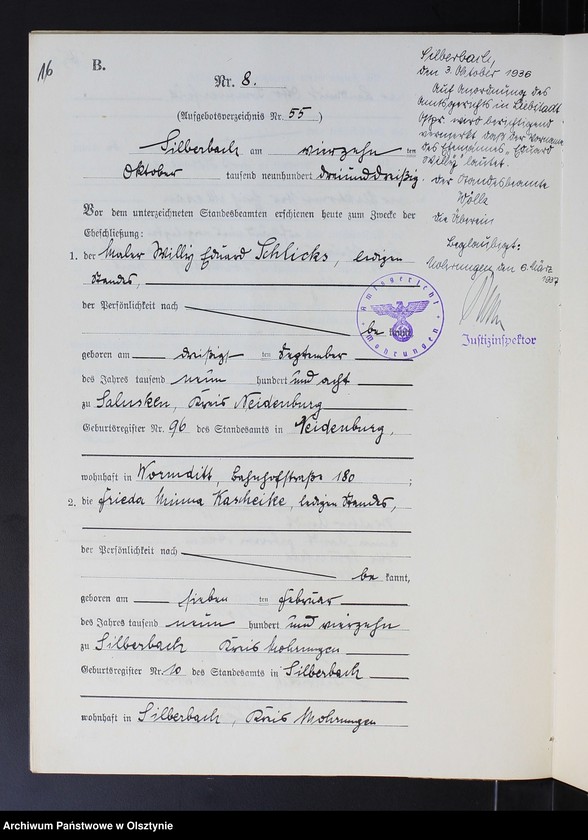 16
B.
Nr. 8.
(Aufgebotsverzeichnis Nr. 55)
Silberbach am vierzehn ten
Oktober tausend neunhundert dreiunddreißig.
Vor dem unterzeichneten Standesbeamten erschienen heute zum Zwecke der
Eheschließung:
1. der Maler Willy Eduard Schlicks, ledigen
Standes,
der Persönlichkeit nach
be kannt,
geboren am dreißigst ten September
des Jahres tausend neun hundert und acht
zu Salusken, Kreis Neidenburg
Geburtsregister Nr. 96 des Standesamts in Neidenburg,
wohnhaft in Wormditt, Bahnhofstraße 180 ;
2. die Frieda Minna Kascheike, ledigen Standes,
der Persönlichkeit nach
be kannt,
geboren am sieben ten Februar
des Jahres tausend neun hundert und vierzehn
zu Silberbach Kreis Mohrungen
Geburtsregister Nr. 10 des Standesamts in Silberbach
wohnhaft in Silberbach, Kreis Mohrungen
Silberbach,
den 3. Oktober 1936
Auf Anordnung des
Amtsgerichts in Liebstadt
Ostpr. wird berichtigend
vermerkt daß der Vorname
des Ehemanns „Eduard
Willy“ lautet.
der Standesbeamte
Wölke
Beglaubigt:
Mohrungen den 6. März
1937
Amtsgericht
Mohrungen
Justizinspektor
Archiwum Państwowe w Olsztynie